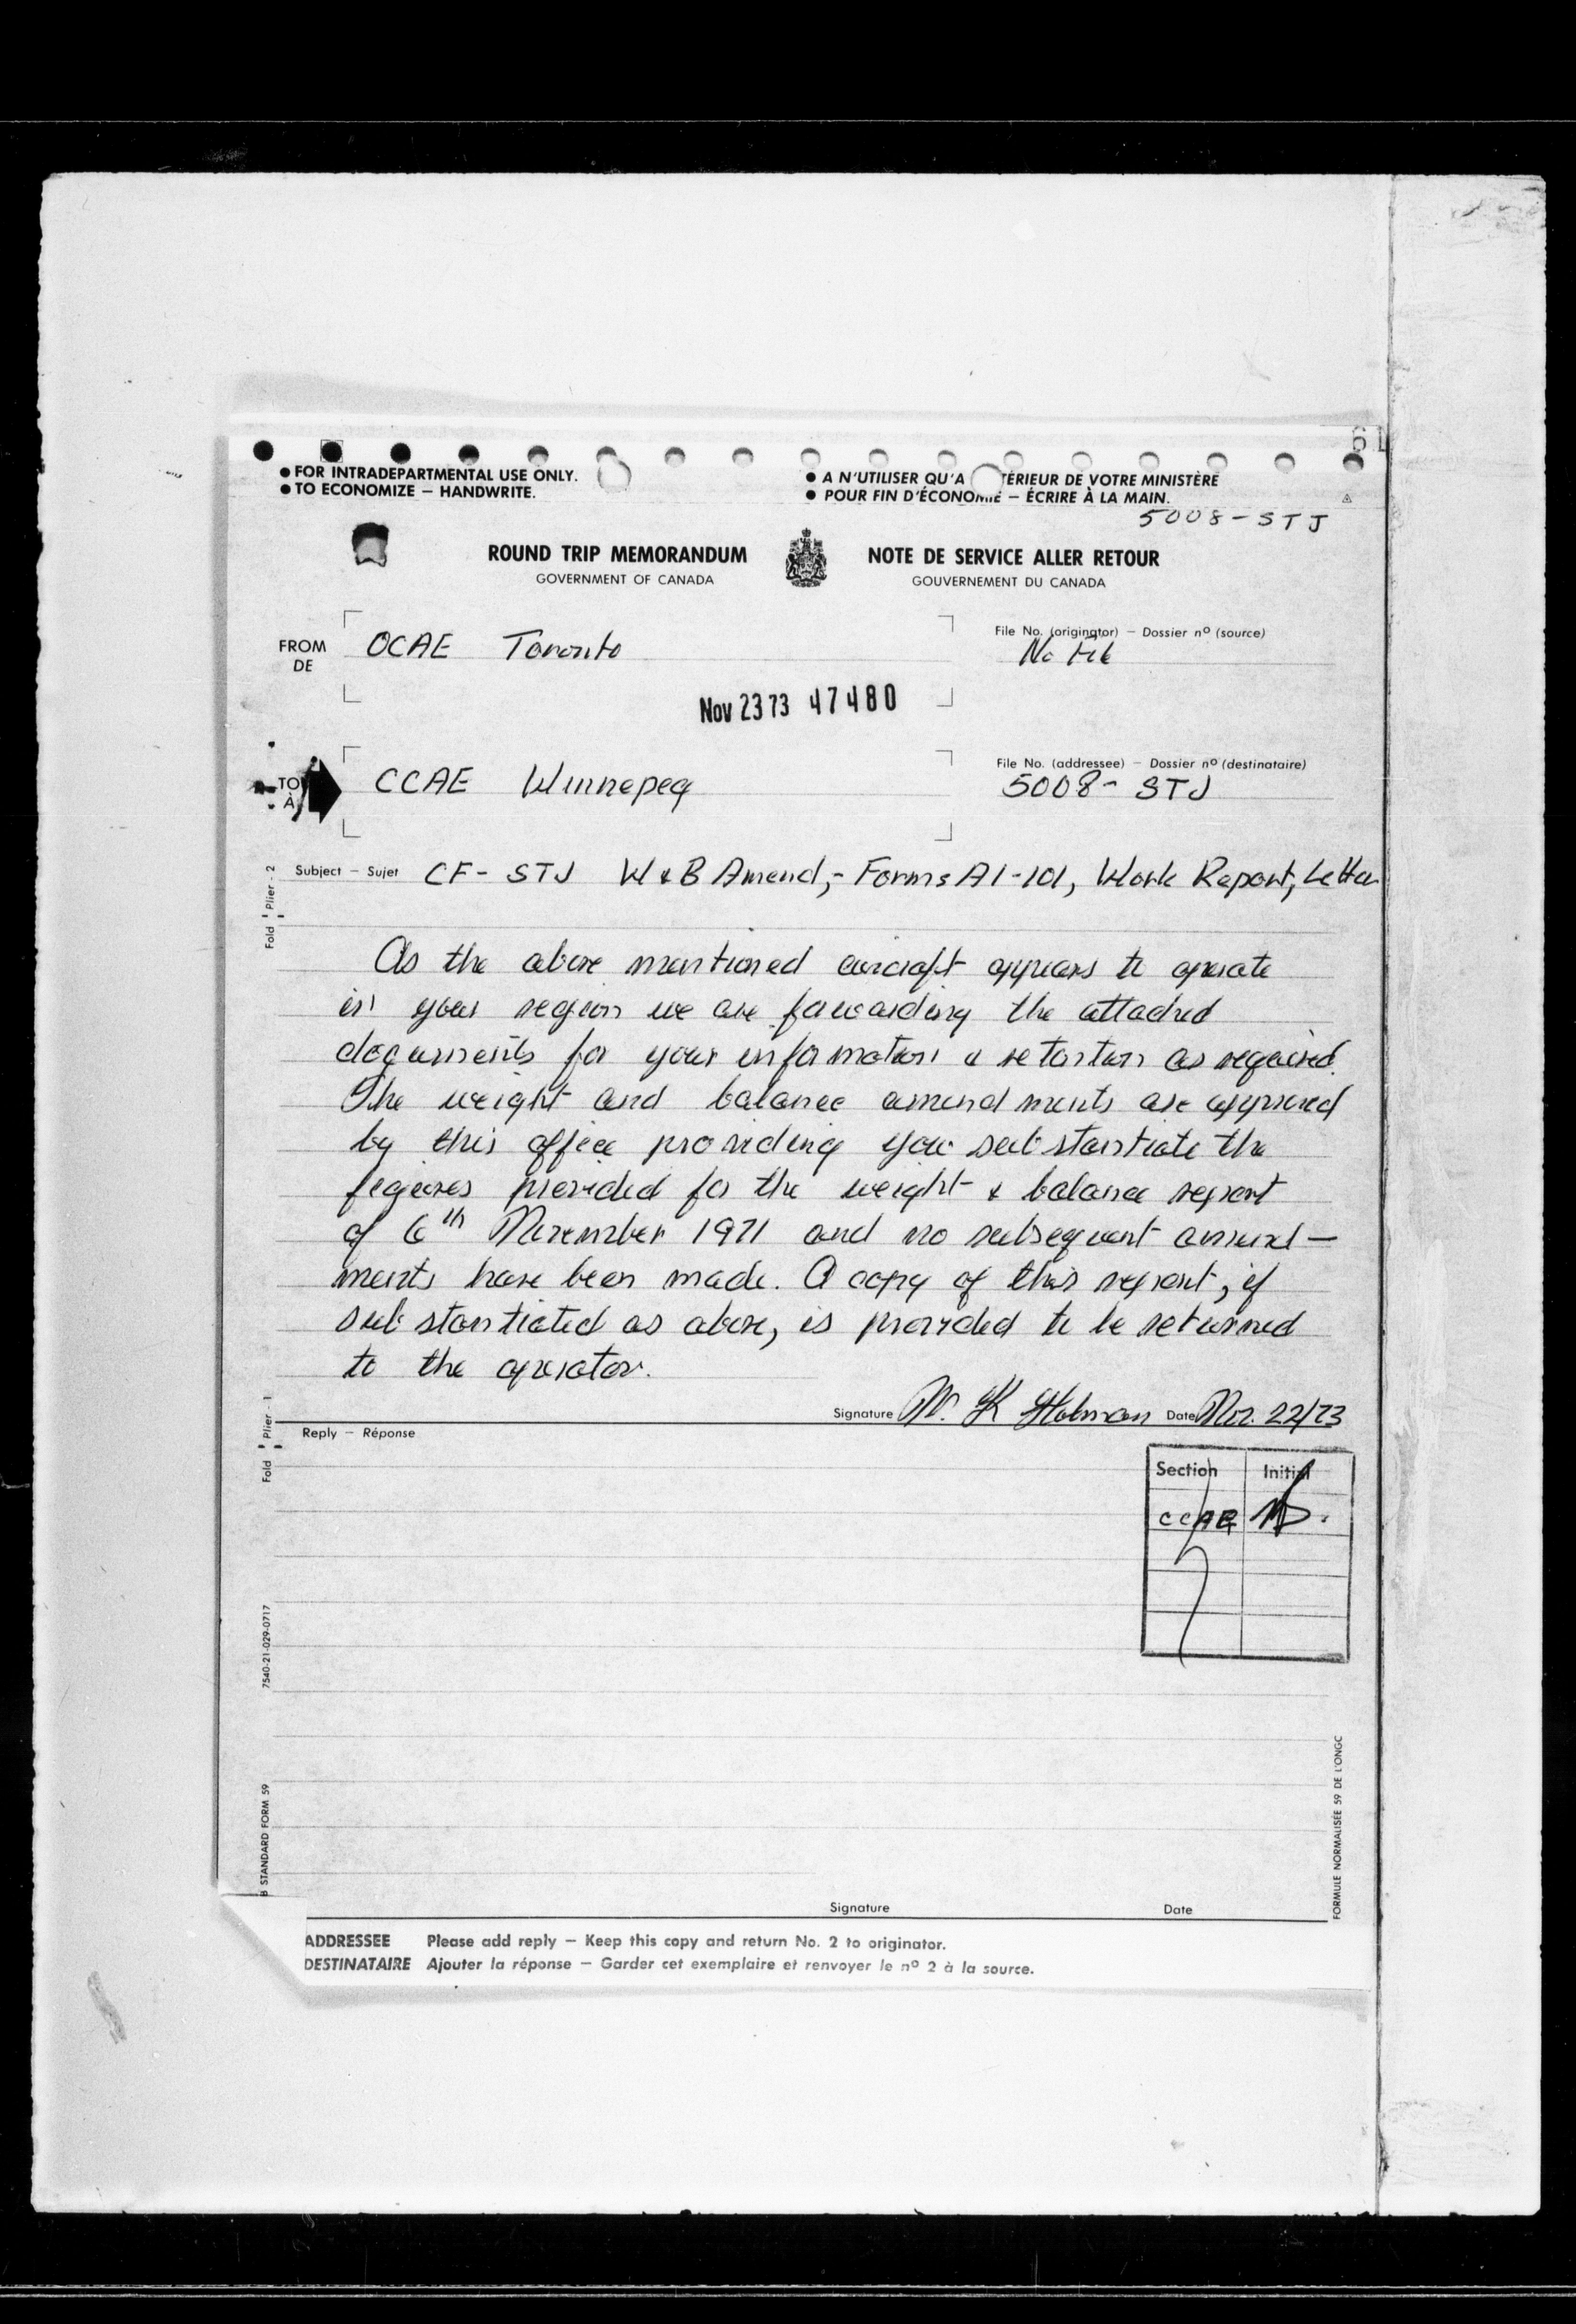 ● FOR INTRADEPARTMENTAL USE ONLY.
● TO ECONOMIZE — HANDWRITE.
● A N'UTILISER QU'A TÉRIEUR DE VOTRE MINISTÈRE
● POUR FIN D'ÉCONOMIE — ÉCRIRE À LA MAIN.
5008-STJ
ROUND TRIP MEMORANDUM
GOVERNMENT OF CANADA
NOTE DE SERVICE ALLER RETOUR
GOUVERNEMENT DU CANADA
FROM
DE
OCAE Toronto
File No. (originator) — Dossier nº (source)
No File
Nov 23 73 47480
TO
À
CCAE Winnepeg
File No. (addressee) — Dossier nº (destinataire)
5008- STJ
Subject — Sujet CF- STJ W & B Amend,- Forms A1-101, Work Report, Letter
As the above mentioned aircraft appears to operate
in your region we are forwarding the attached
documents for your information & retention as required.
The weight and balance amendments are approved
by this office providing you substantiate the
figures provided for the weight & balance report
of 6th November 1971 and no subsequent amend—
ments have been made. A copy of this report, if
substantiated as above, is provided to be returned
to the operator.
Signature W. K Holman Date Nov. 22/73
Reply — Réponse
Section Initial
CCAE
Fold Plier - 2
Fold Plier - 1
7540-21-029-0717
B STANDARD FORM 59
FORMULE NORMALISÉE 59 DE L'ONGC
Signature Date
ADDRESSEE Please add reply — Keep this copy and return No. 2 to originator.
DESTINATAIRE Ajouter la réponse — Garder cet exemplaire et renvoyer le nº 2 à la source.